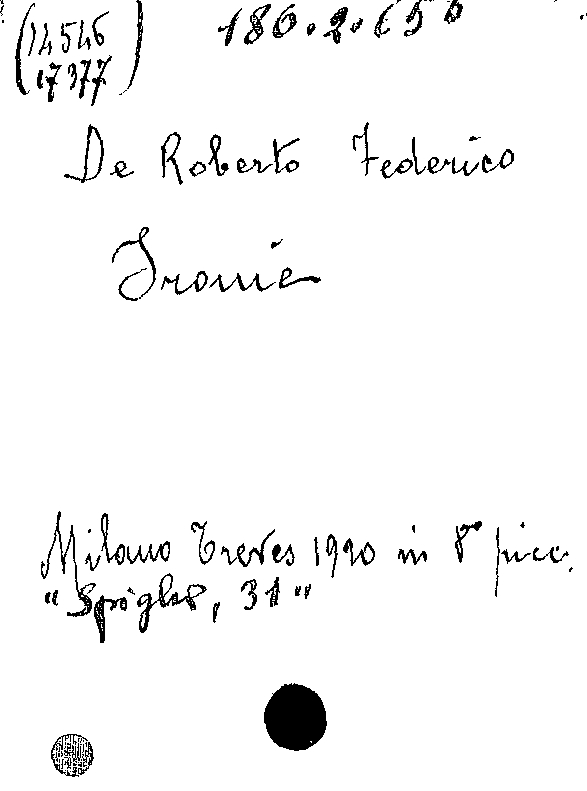 (14546
17377)
180.2.C50
De Roberto Federico
Ironie
Milano Treves 1920 in 8° picc.
"Spighe, 31"